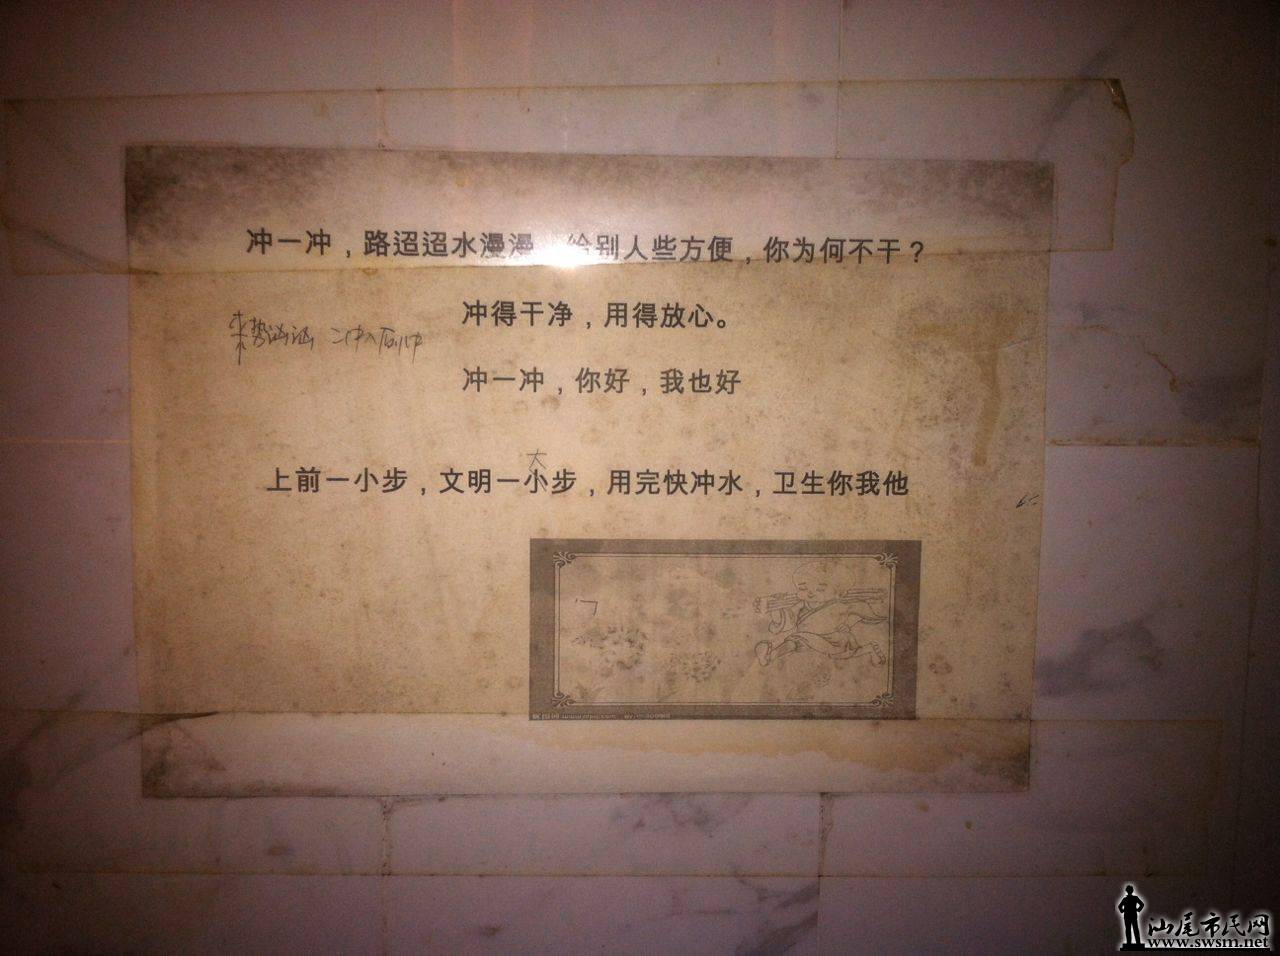 冲一冲，路迢迢水漫漫 给别人些方便，你为何不干？
冲得干净，用得放心。
来势汹汹 二冲入后冲
冲一冲，你好，我也好
大
上前一小步，文明一小步，用完快冲水，卫生你我他
汕尾市民网
www.swsm.net